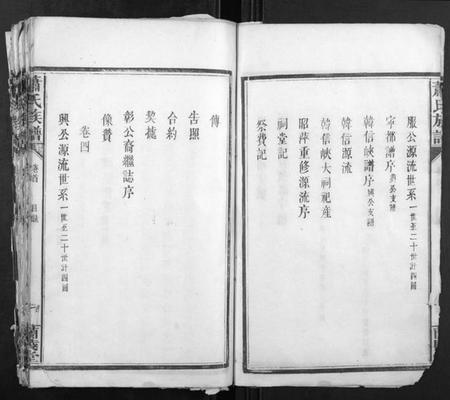 蕭氏族譜
服公源流世系一世至二十世計四圖
寧都譜序興公支譜
韓信峽譜序興公支譜
韓信源流
韓信峽大祠祀産
昭萍重修源流序
祠堂記
祭費記
傳
告照
合約
契據
彰公裔繼誌序
像贊
卷四
興公源流世系一世至二十世計四圖
蕭氏族譜
卷首
目錄